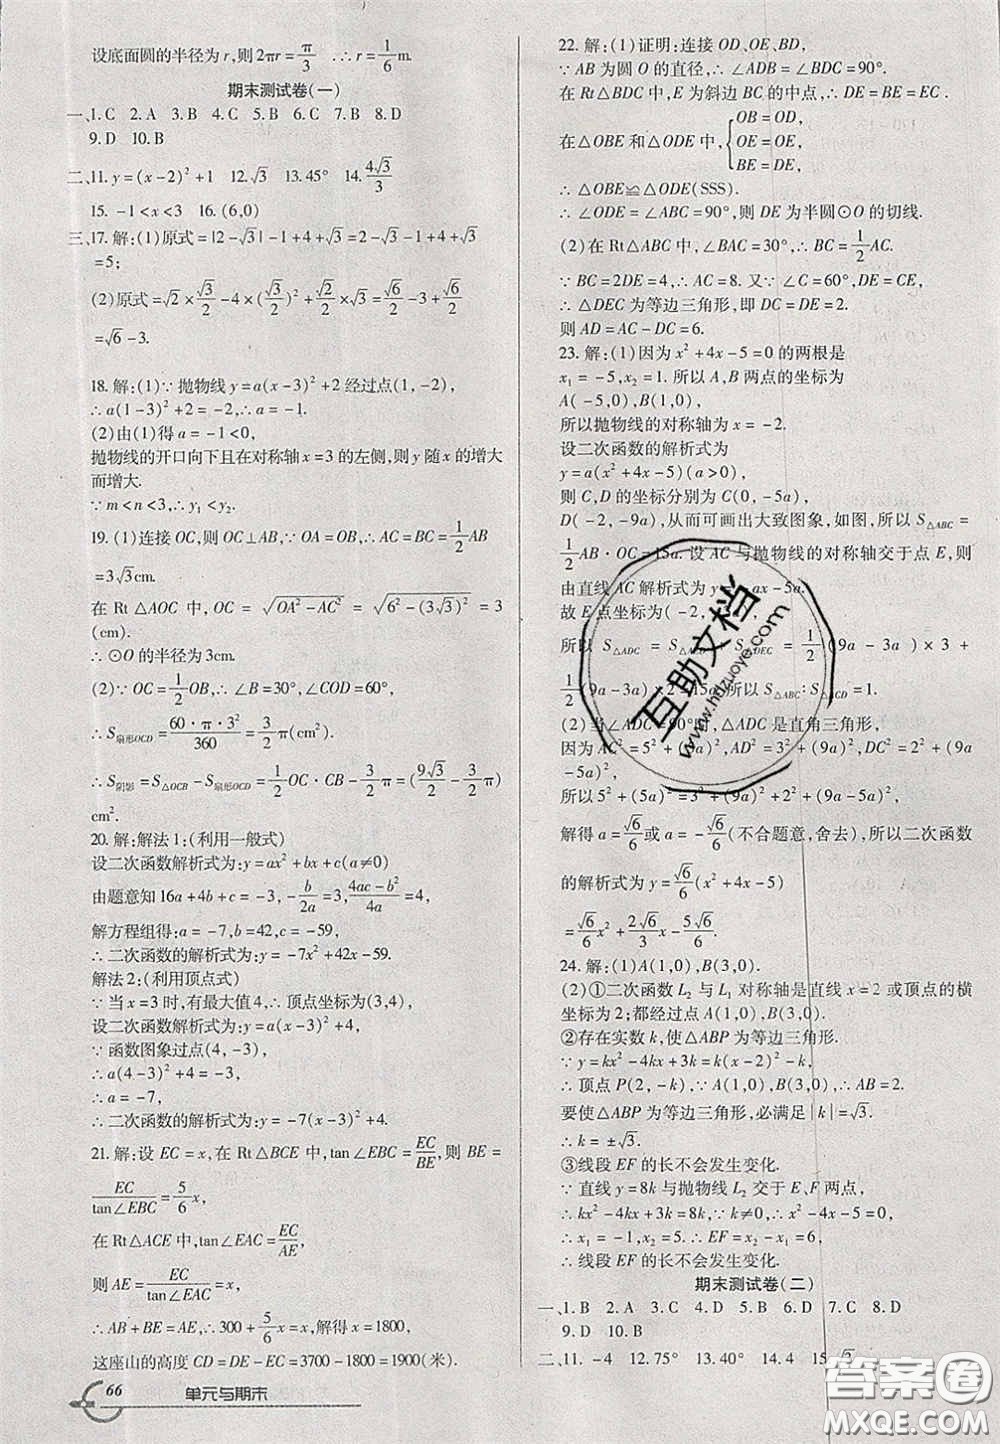 设底面圆的半径为r,则2πr=π/3 ∴r=1/6m.
期末测试卷(一)
一、1.C 2.A 3.B 4.C 5.B 6.C 7.B 8.D
9.D 10.B
二、11.y=(x-2)²+1 12.√3 13.45° 14.4√3/3
15.-1<x<3 16.(6,0)
三、17.解:(1)原式=|2-√3|-1+4+√3=2-√3-1+4+√3
=5;
(2)原式=√2×√3/2-4×(√3/2)²+√2/2×√3=√6/2-3+√6/2
=√6-3.
18.解:(1)∵抛物线y=a(x-3)²+2经过点(1,-2),
∴a(1-3)²+2=-2.∴a=-1.
(2)由(1)得a=-1<0,
抛物线的开口向下且在对称轴x=3的左侧,则y随x的增大
而增大.
∵m<n<3,∴y₁<y₂.
19.(1)连接OC,则OC⊥AB,∵OA=OB,∴AC=BC=1/2AB
=3√3cm.
在Rt△AOC中,OC=√(OA²-AC²)=√(6²-(3√3)²)=3
(cm).
∴⊙O的半径为3cm.
(2)∵OC=1/2OB,∴∠B=30°,∠COD=60°.
∴S扇形OCD=60·π·3²/360=3/2π(cm²).
∴S阴影=S△OCB-S扇形OCD=1/2OC·CB-3/2π=(9√3/2-3/2π)
cm².
20.解:解法1:(利用一般式)
设二次函数解析式为:y=ax²+bx+c(a≠0)
由题意知16a+4b+c=-3,-b/2a=3,4ac-b²/4a=4,
解方程组得:a=-7,b=42,c=-59.
∴二次函数的解析式为:y=-7x²+42x-59.
解法2:(利用顶点式)
∵当x=3时,有最大值4,∴顶点坐标为(3,4),
设二次函数解析式为:y=a(x-3)²+4,
∵函数图象过点(4,-3),
∴a(4-3)²+4=-3,
∴a=-7,
∴二次函数的解析式为:y=-7(x-3)²+4.
21.解:设EC=x,在Rt△BCE中,tan∠EBC=EC/BE,则BE=
EC/tan∠EBC=5/6x,
在Rt△ACE中,tan∠EAC=EC/AE,
则AE=EC/tan∠EAC=x,
∴AB+BE=AE,∴300+5/6x=x,解得x=1800,
这座山的高度CD=DE-EC=3700-1800=1900(米).
66 单元与期末
22.解:(1)证明:连接OD、OE、BD,
∵AB为圆O的直径,∴∠ADB=∠BDC=90°.
在Rt△BDC中,E为斜边BC的中点,∴DE=BE=EC.
在△OBE和△ODE中,{OB=OD,
OE=OE,
BE=DE,
∴△OBE≌△ODE(SSS).
∴∠ODE=∠ABC=90°,则DE为半圆⊙O的切线.
(2)在Rt△ABC中,∠BAC=30°,∴BC=1/2AC.
∵BC=2DE=4,∴AC=8.又∵∠C=60°,DE=CE,
∴△DEC为等边三角形,即DC=DE=2.
则AD=AC-DC=6.
23.解:(1)因为x²+4x-5=0的两根是
x₁=-5,x₂=1.所以A、B两点的坐标为
A(-5,0),B(1,0),
所以抛物线的对称轴为x=-2.
设二次函数的解析式为
y=a(x²+4x-5)(a>0),
则C、D的坐标分别为C(0,-5a),
D(-2,-9a),从而可画出大致图象,如图,所以S△ABC=
1/2AB·OC=15a.设AC与抛物线的对称轴交于点E,则
由直线AC解析式为y=-ax-5a.
故E点坐标为(-2,
所以S△ADC=S△ADE+S△DEC=1/2(9a-3a)×3+
1/2(9a-3a)×2=15a.所以S△ABC:S△ACD=1.
(2)当∠ADC=90°时,△ADC是直角三角形,
因为AC²=5²+(5a)²,AD²=3²+(9a)²,DC²=2²+(9a
-5a)²,
所以5²+(5a)²=3²+(9a)²+2²+(9a-5a)²,
解得a=√6/6或a=-√6/6(不合题意,舍去),所以二次函数
的解析式为y=√6/6(x²+4x-5)
=√6/6x²+2√6/3x-5√6/6.
24.解:(1)A(1,0),B(3,0).
(2)①二次函数L₂与L₁对称轴是直线x=2或顶点的横
坐标为2;都经过点A(1,0),B(3,0).
②存在实数k,使△ABP为等边三角形.
∵y=kx²-4kx+3k=k(x-2)²-k,
∴顶点P(2,-k),∵A(1,0),B(3,0),∴AB=2.
要使△ABP为等边三角形,必满足|k|=√3.
∴k=±√3.
③线段EF的长不会发生变化.
∵直线y=8k与抛物线L₂交于E、F两点,
∴kx²-4kx+3k=8k,∵k≠0,∴x²-4x+3=8,
∴x₁=-1,x₂=5.∴EF=x₂-x₁=6.
∴线段EF的长不会发生变化.
期末测试卷(二)
一、1.B 2.A 3.C 4.D 5.B 6.D 7.C 8.D
9.D 10.B
二、11.-4 12.75° 13.40° 14.4 15.√3
互助文档
www.hdzuoye.com
答案圈
MXQE.COM